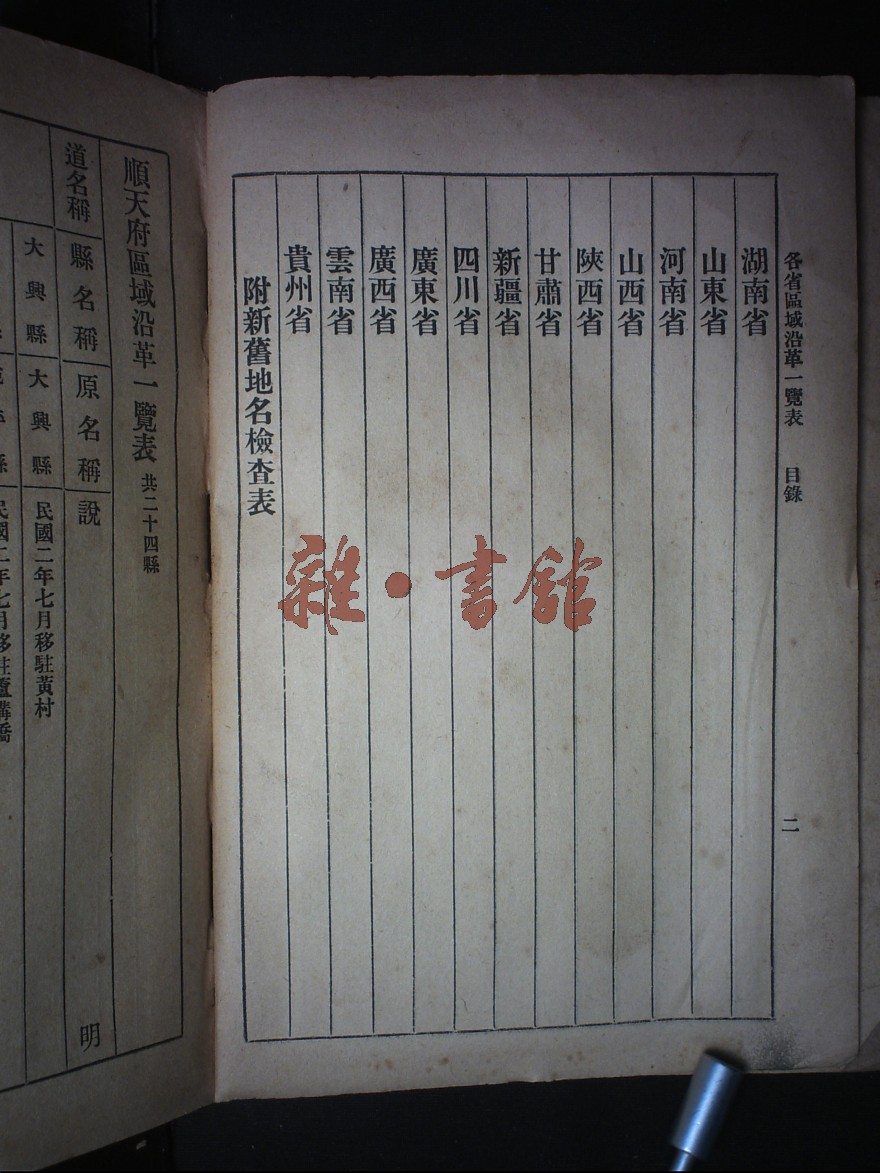 各省區域沿革一覽表　目錄　二
湖南省
山東省
河南省
山西省
陝西省
甘肅省
新疆省
四川省
廣東省
廣西省
雲南省
貴州省
附新舊地名檢查表
雜·書館
順天府區域沿革一覽表　共二十四縣
道名稱　縣名稱　原名稱　說　明
大興縣　大興縣　民國二年七月移駐黃村
民國二年七月移駐蘆溝橋